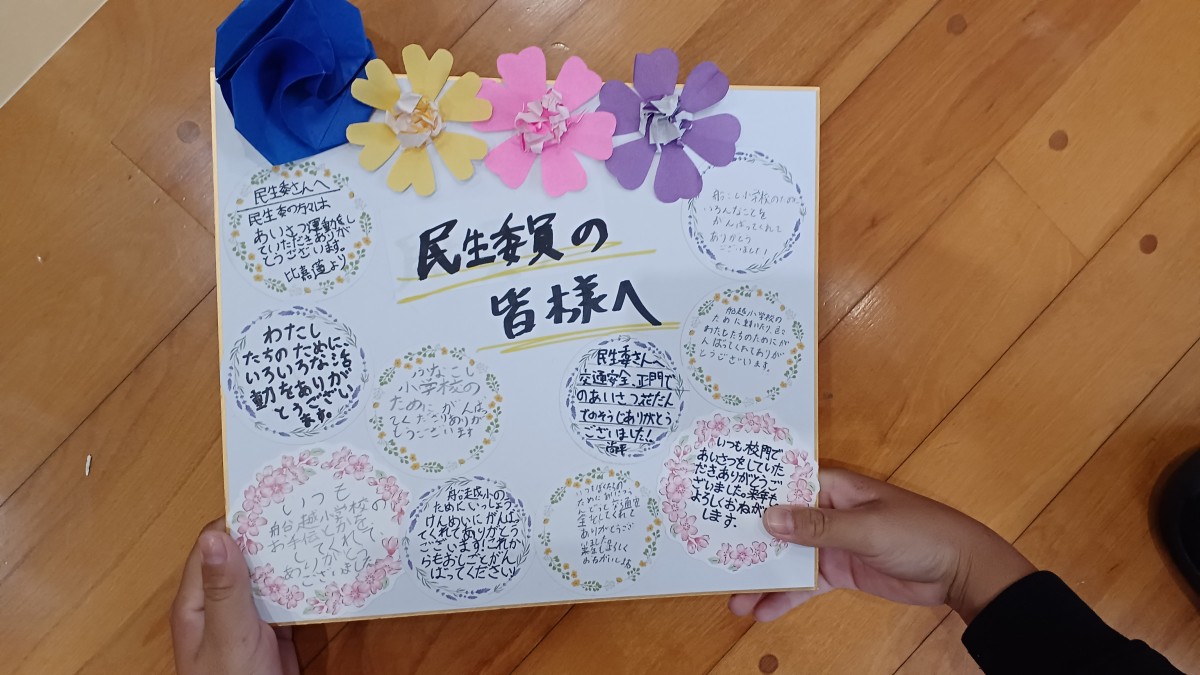 民生委員の
皆様へ
民生委さんへ
民生委の方々は
あいさつ運動をし
ていただきありが
とうございます。
比嘉蓮より
船こし小学校のため、
いろんなことを
がんばってくれて
ありがとう
ございました!
わたし
たちのために
いろいろな活
動をありが
とうござい
ます。
ふなこし
小学校の
ためにがんば
てくださりありが
とうございます
民生委さんへ
交通安全、正門で
のあいさつ花だん
でのそうじありがとう
ございました!!
船越小学校の
わたしたちのためにが
んばってくれてありが
とうございます。
いつも
船越小学校の
お手伝とかを
してくれて
ありがとう
ございました
船越小の
ためにいっしょう
けんめいにがんば
てくれてありがとう
ございます!これか
らもおしごとがん
ばってください!
いつもぼくたちの
ために
安全をしてくれて
ありがとうござ
いました。
来年もよろしく
おねがいします
いつも校門で
あいさつをしていた
だきありがとうご
ざいました。来年も
よろしくおねがい
します。